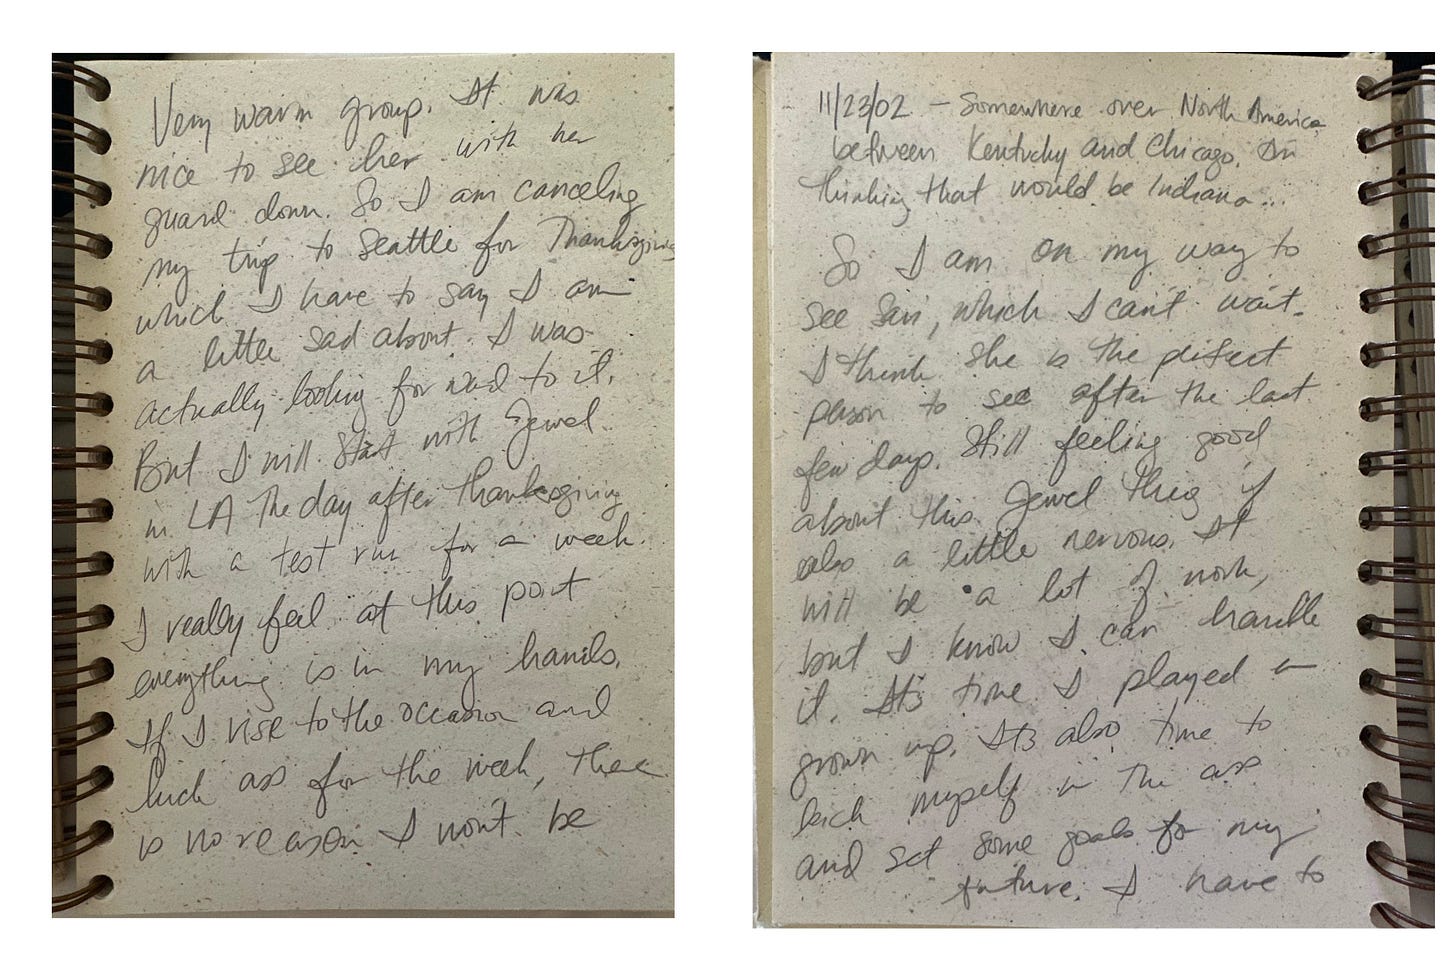 Very warm group. It was
nice to see her with her
guard down. So I am canceling
my trip to Seattle for Thanksgiving
which I have to say I am
a little sad about. I was
actually looking forward to it.
But I will start with Jewel
in LA The day after Thanksgiving
with a test run for a week.
I really feel at this point
everything is in my hands.
If I rise to the occasion and
kick ass for the week, there
is no reason I won't be
11/23/02 – Somewhere over North America
between Kentucky and Chicago. Im
thinking that would be Indiana...
So I am on my way to
see , which I can't wait.
I think she is the perfect
person to see after the last
few days. Still feeling good
about this Jewel thing if
also a little nervous. It
will be a lot of work,
but I know I can handle
it. It's time I played a
grown up. It's also time to
kick myself in the ass
and set some goals for my
future. I have to